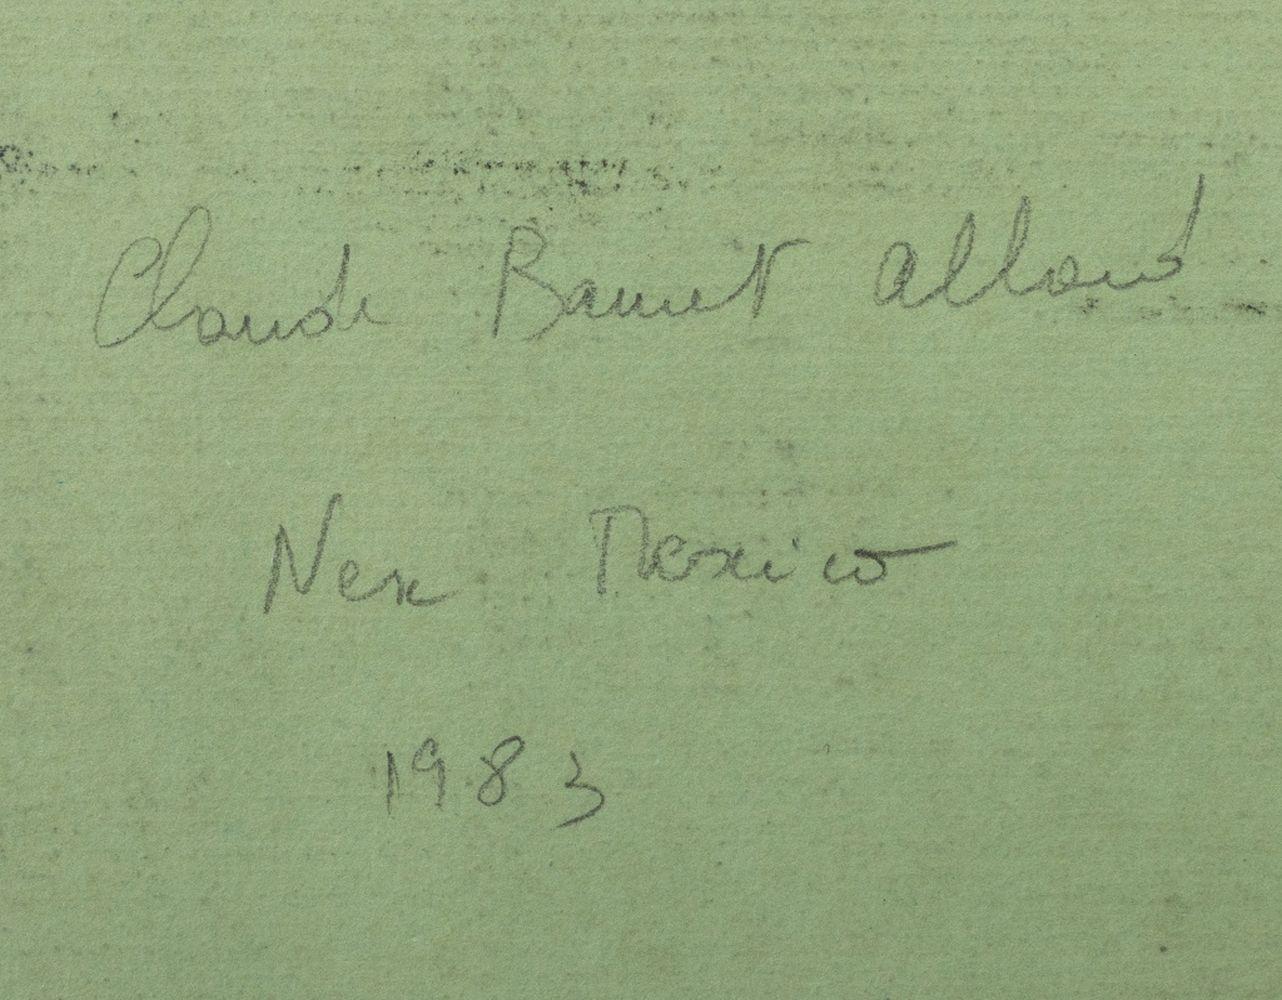 Claude Barret Allard
New Mexico
1983